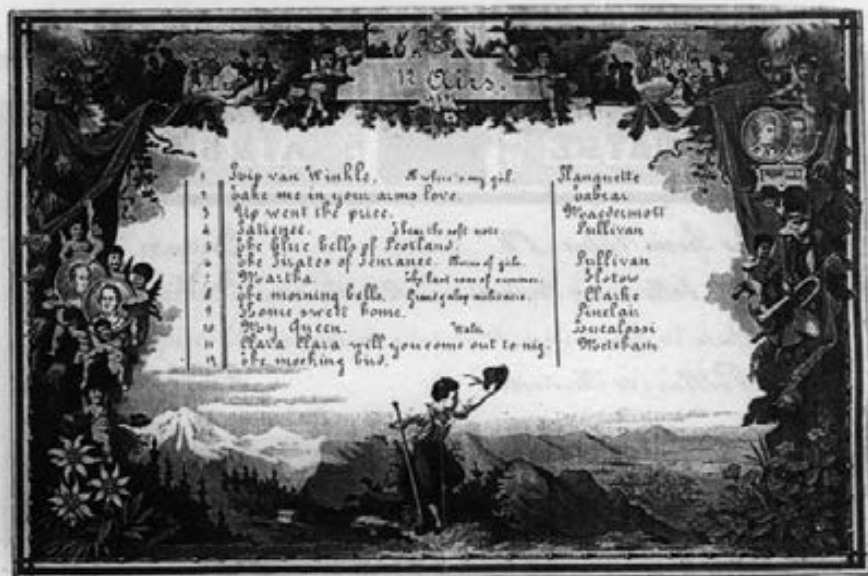 12 Airs.
1 Rip van Winkle. O where's my girl. Planquette
2 Take me in your arms love. Tabrar
3 Up went the price. Macdermott
4 Patience. I hear the soft note Sullivan
5 The blue bells of Scotland.
6 The Pirates of Penzance. of girls. Sullivan
7 Martha. The last rose of summer. Flotow
8 The morning bells. Grand galop Clarke
9 Home sweet home. Sinclair
10 My Queen. Waltz Bucalossi
11 Clara Clara will you come out to nig.
12 The mocking bird.